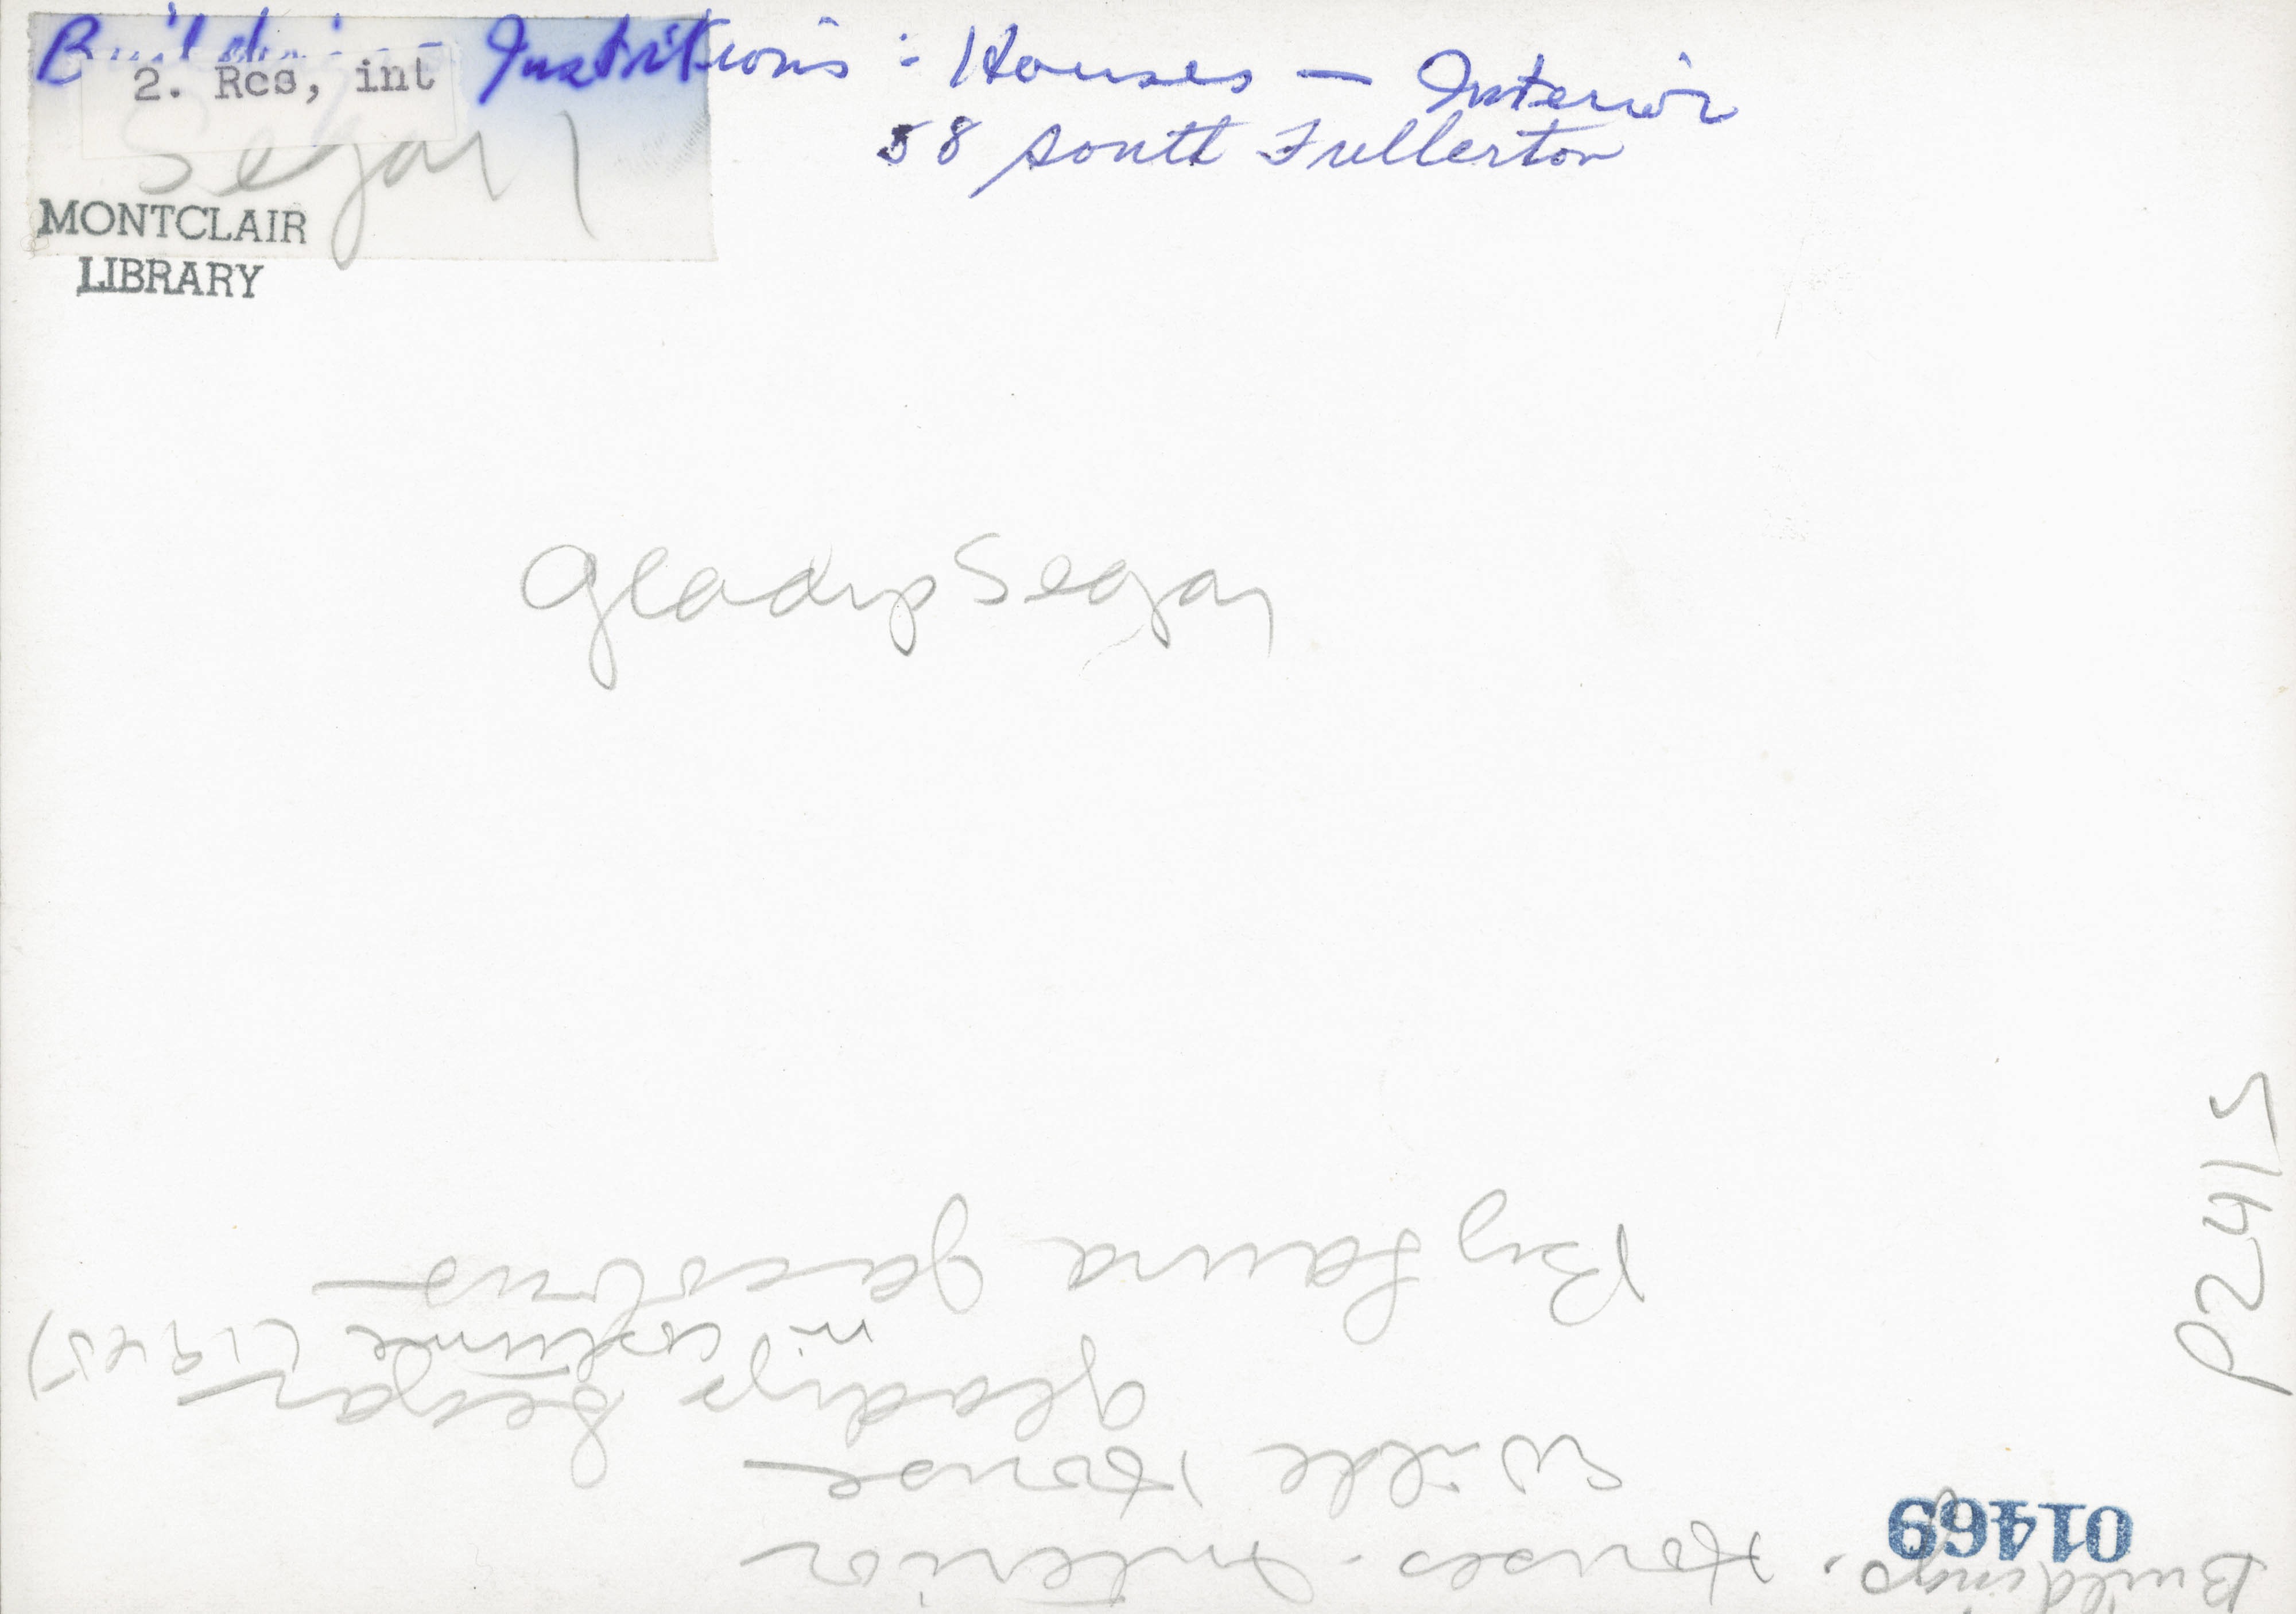 Buildings - Institutions : Houses — Interior
2. Res, int
58 South Fullerton
Segar
MONTCLAIR
LIBRARY
Gladys Segar
P2415
01469
Buildings. Houses. Interior
Wilde House
Gladys Segar
in costume (1945)
By Laura Jacobus